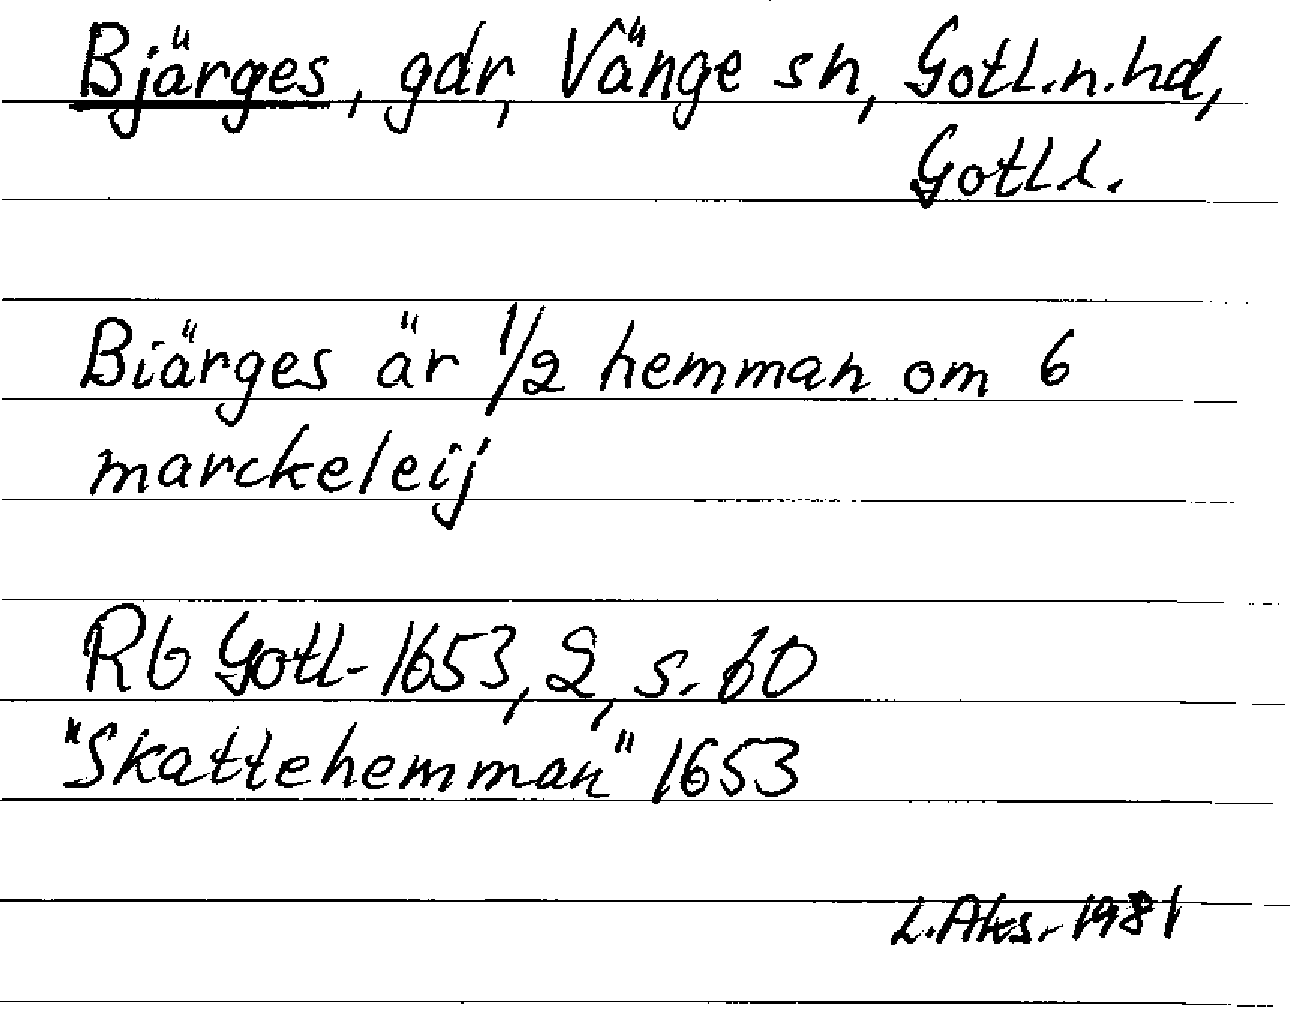 Bjärges, gdr, Vänge sn, Gotl.n.hd,
Gotl.l.
Biärges är 1/2 hemman om 6
marckeleij
Rb Gotl. 1653, 2, s. 60
"Skattehemman" 1653
L.Aks. 1981